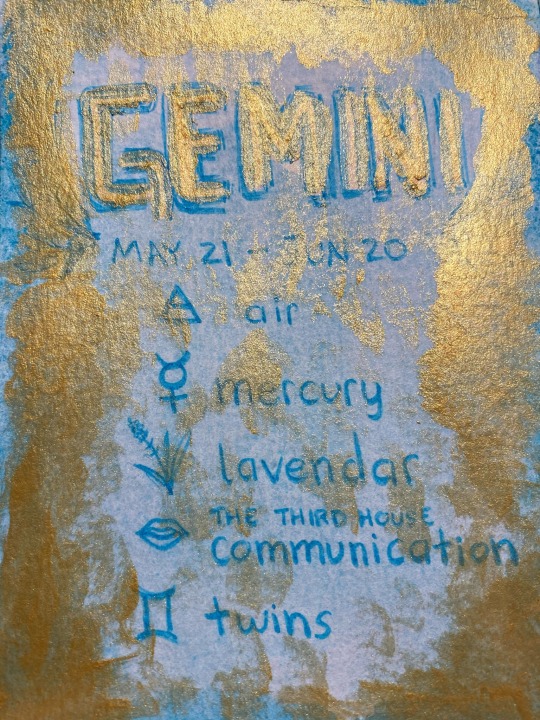 GEMINI
MAY 21 - JUN 20
air
mercury
lavendar
THE THIRD HOUSE
communication
twins